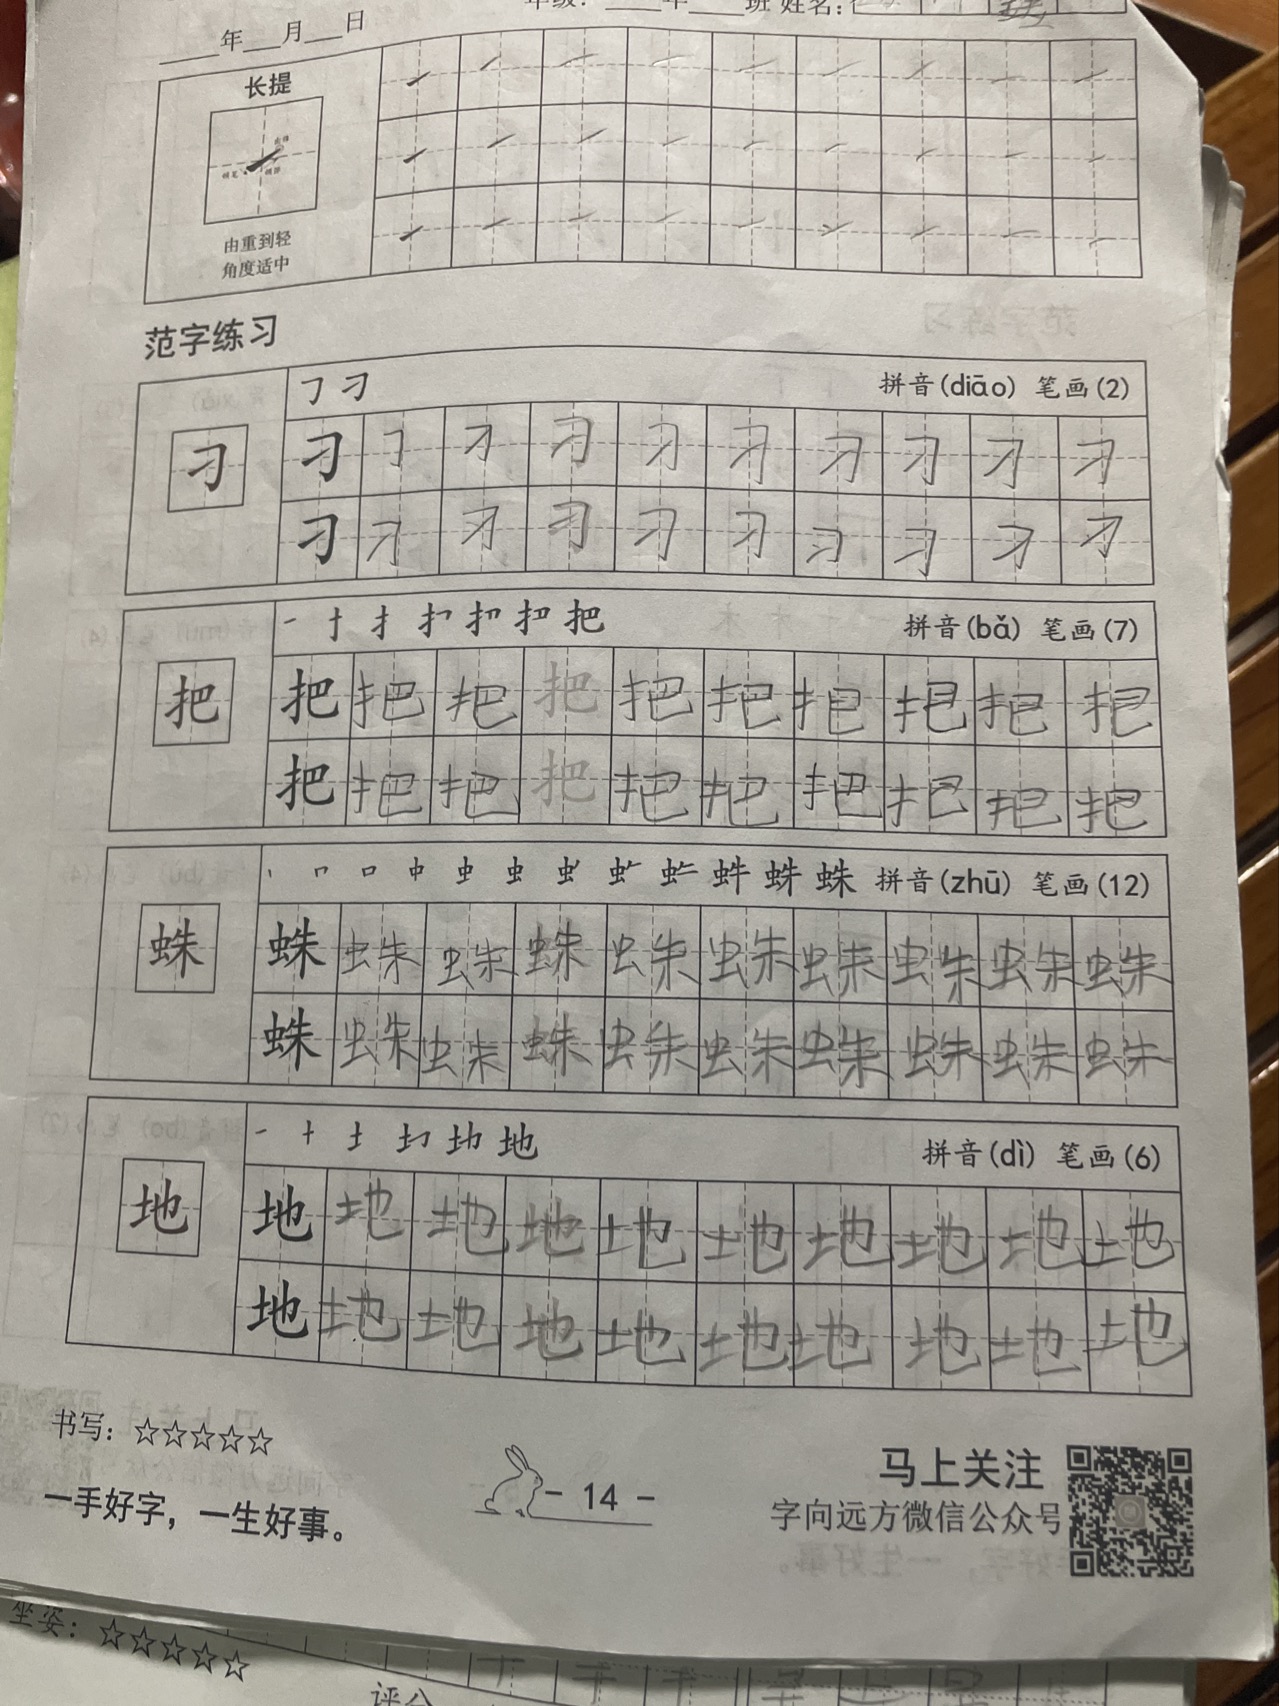 年级：____年____班 姓名：
____年___月___日
长提
由重到轻
角度适中
范字练习
㇆ 刁 拼音(diāo) 笔画(2)
刁 刁 刁 刁 刁 刁 刁 刁 刁 刁 刁
刁 刁 刁 刁 刁 刁 刁 刁 刁 刁
把 拼音(bǎ) 笔画(7)
把 把 把 把 把 把 把 把 把 把 把
把 把 把 把 把 把 把 把 把 把
丨 口 虫 蛛 拼音(zhū) 笔画(12)
蛛 蛛 蛛 蛛 蛛 蛛 蛛 蛛 蛛 蛛 蛛
蛛 蛛 蛛 蛛 蛛 蛛 蛛 蛛 蛛 蛛
一 十 土 地 拼音(dì) 笔画(6)
地 地 地 地 地 地 地 地 地 地 地
地 地 地 地 地 地 地 地 地 地
书写：☆☆☆☆☆
一手好字，一生好事。
- 14 -
马上关注
字向远方微信公众号
坐姿：☆☆☆☆☆
评分